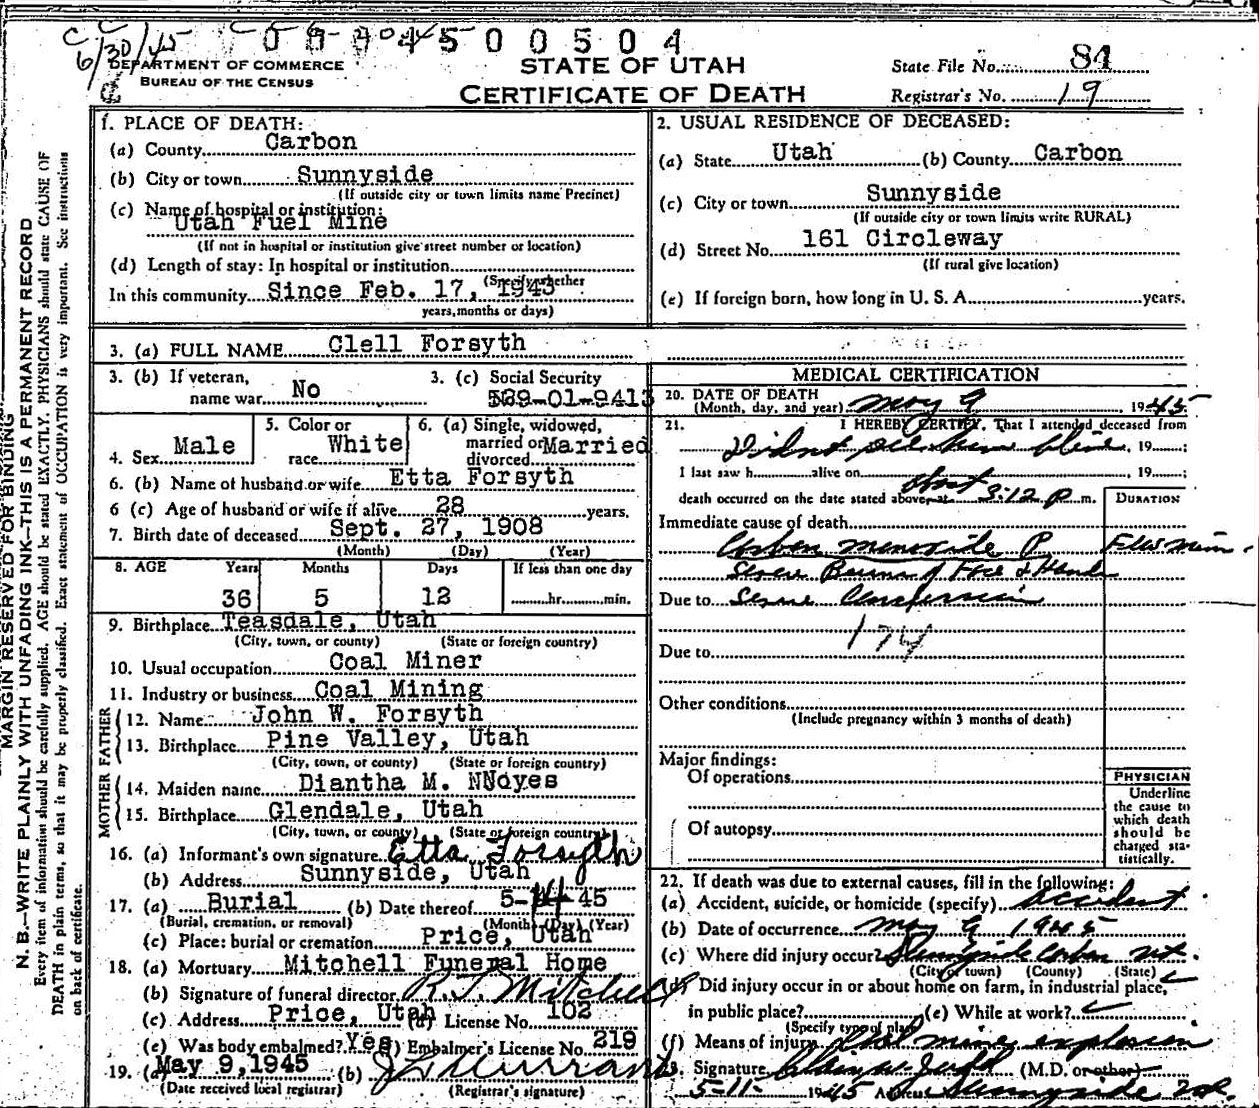 C C
6/30/45
0 8 3 0 4 4 5 0 0 5 0 4
DEPARTMENT OF COMMERCE
BUREAU OF THE CENSUS
STATE OF UTAH
CERTIFICATE OF DEATH
State File No. 84
Registrar's No. 19
MARGIN RESERVED FOR BINDING
N. B.—WRITE PLAINLY WITH UNFADING INK—THIS IS A PERMANENT RECORD
Every item of information should be carefully supplied. AGE should be stated EXACTLY. PHYSICIANS should state CAUSE OF
DEATH in plain terms, so that it may be properly classified. Exact statement of OCCUPATION is very important. See instructions
on back of certificate.
1. PLACE OF DEATH:
(a) County Carbon
(b) City or town Sunnyside
(If outside city or town limits name Precinct)
(c) Name of hospital or institution:
Utah Fuel Mine
(If not in hospital or institution give street number or location)
(d) Length of stay: In hospital or institution
(Specify whether
In this community Since Feb. 17, 1943
years, months or days)
2. USUAL RESIDENCE OF DECEASED:
(a) State Utah (b) County Carbon
(c) City or town Sunnyside
(If outside city or town limits write RURAL)
(d) Street No. 161 Circleway
(If rural give location)
(e) If foreign born, how long in U. S. A. years.
3. (a) FULL NAME Clell Forsyth
3. (b) If veteran, name war No
3. (c) Social Security 529-01-9413
4. Sex Male
5. Color or race White
6. (a) Single, widowed, married or divorced Married
6. (b) Name of husband or wife Etta Forsyth
6 (c) Age of husband or wife if alive 28 years.
7. Birth date of deceased Sept. 27, 1908
(Month) (Day) (Year)
8. AGE Years Months Days If less than one day
36 5 12 hr. min.
9. Birthplace Teasdale, Utah
(City, town, or county) (State or foreign country)
10. Usual occupation Coal Miner
11. Industry or business Coal Mining
FATHER
12. Name John W. Forsyth
13. Birthplace Pine Valley, Utah
(City, town, or county) (State or foreign country)
MOTHER
14. Maiden name Diantha M. NNoyes
15. Birthplace Glendale, Utah
(City, town, or county) (State or foreign country)
16. (a) Informant's own signature Etta Forsyth
(b) Address Sunnyside, Utah
17. (a) Burial (b) Date thereof 5-14-45
(Burial, cremation, or removal) (Month) (Day) (Year)
(c) Place: burial or cremation Price, Utah
18. (a) Mortuary Mitchell Funeral Home
(b) Signature of funeral director R. T. Mitchell
(c) Address Price, Utah (d) License No. 102
(e) Was body embalmed? Yes (f) Embalmer's License No. 219
19. (a) May 9, 1945 (b)
(Date received local registrar) (Registrar's signature)
MEDICAL CERTIFICATION
20. DATE OF DEATH
(Month, day, and year) May 9, 1945
21. I HEREBY CERTIFY, That I attended deceased from
Did not see him alive, 19 ;
I last saw h alive on , 19 ;
about
death occurred on the date stated above, at 3:12 P m.
DURATION
Immediate cause of death
Carbon monoxide P Few min.
Severe Burns of Face & Hands
Due to
174
Due to
Other conditions
(Include pregnancy within 3 months of death)
Major findings:
Of operations
Of autopsy
PHYSICIAN
Underline
the cause to
which death
should be
charged sta-
tistically.
22. If death was due to external causes, fill in the following:
(a) Accident, suicide, or homicide (specify) accident
(b) Date of occurrence May 9 1945
(c) Where did injury occur? Sunnyside Carbon Ut.
(City or town) (County) (State)
(d) Did injury occur in or about home on farm, in industrial place,
in public place? (e) While at work?
(Specify type of place)
(f) Means of injury Coal mine explosion
23. Signature (M.D. or other)
5-11- 1945 Address Sunnyside